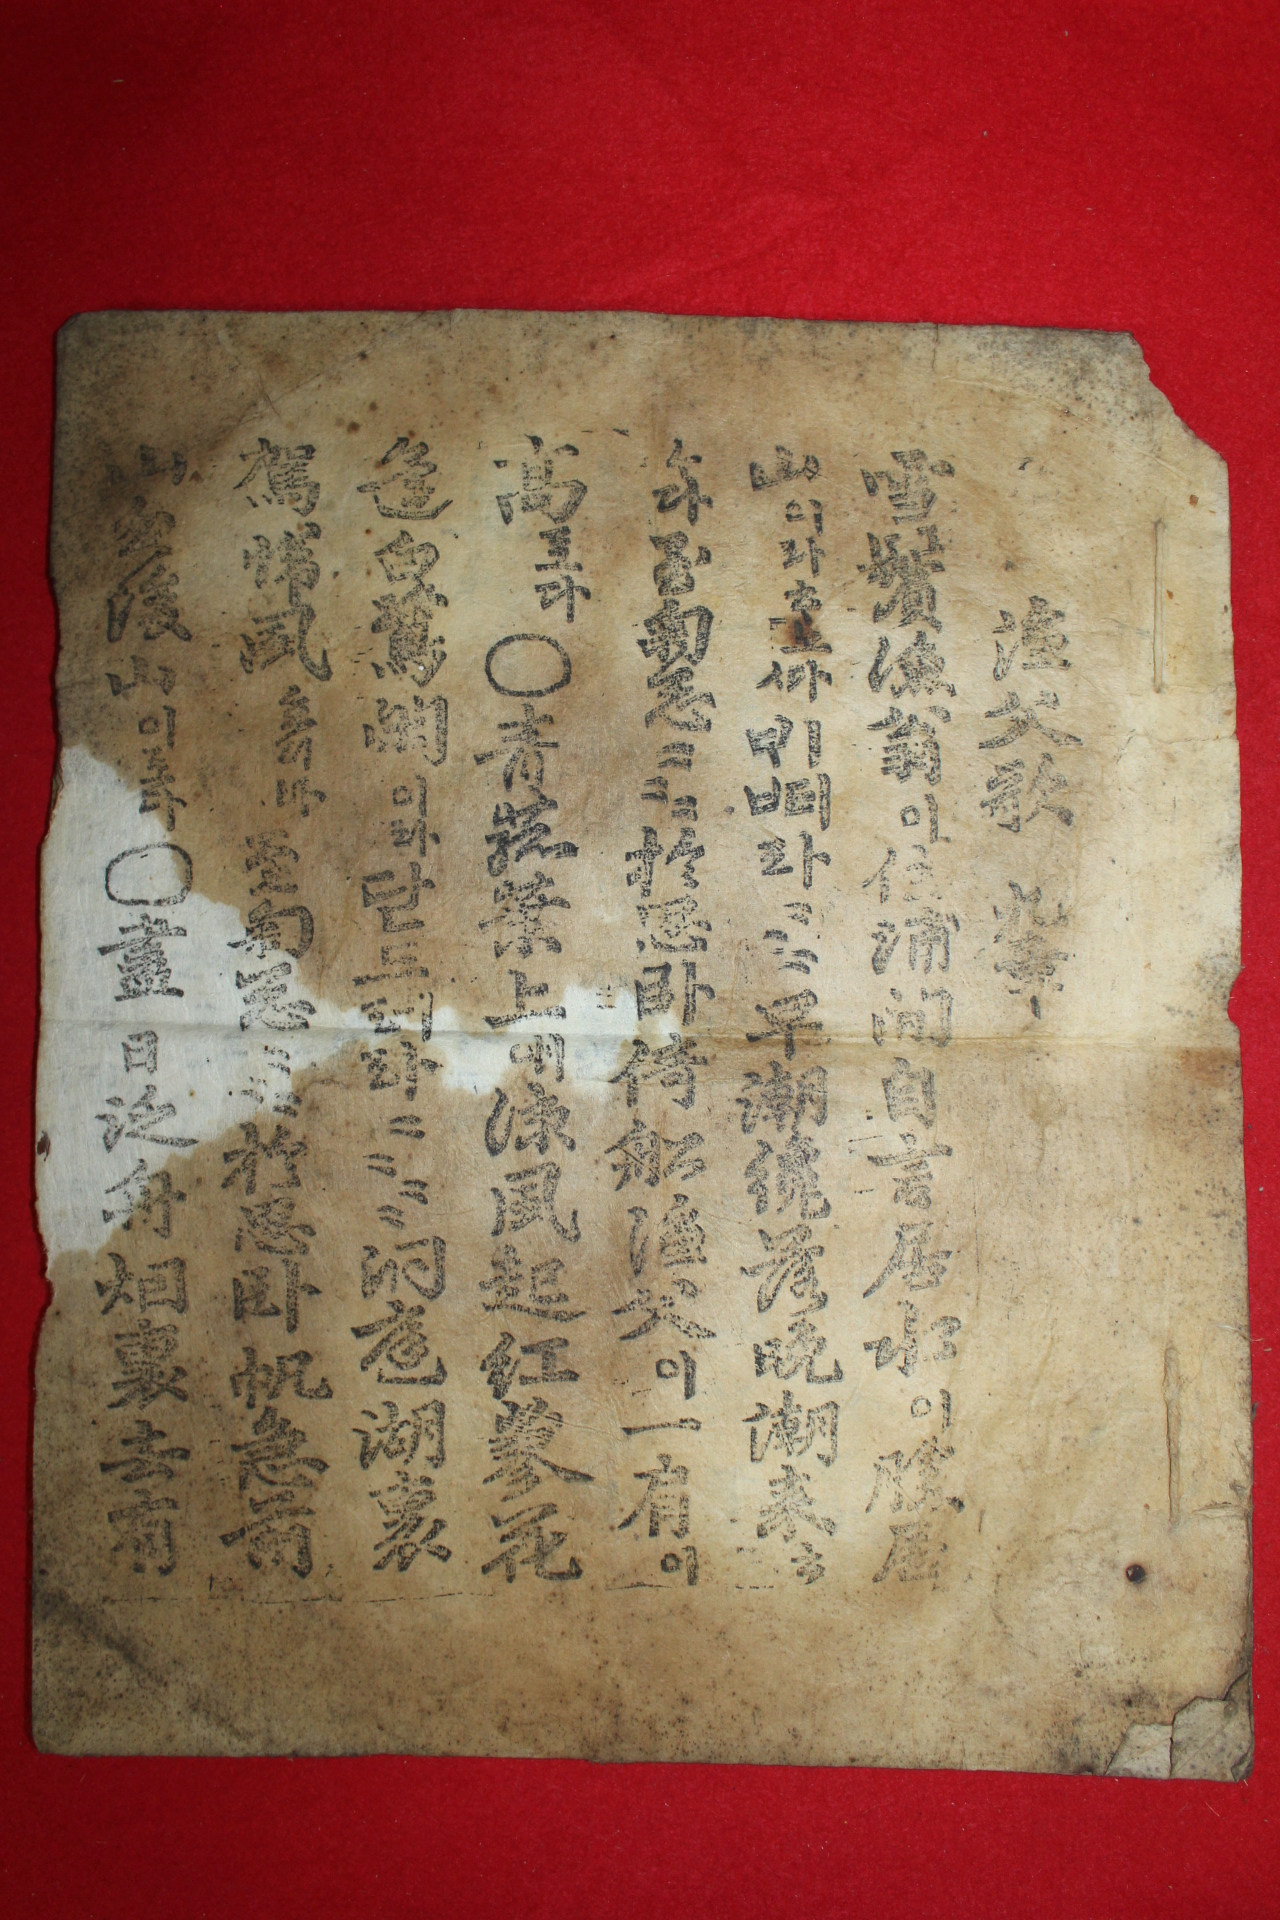 漁父歌 九章
雪鬢漁翁이住浦間自言居水이勝居
山이라ᄒᆞ놋다ᄇᆡᄠᅥ라〻〻早潮纔落晩潮來ᄒᆞ
ᄂᆞ다至匊悤〻〻於思臥倚船漁父이一肩이
高로다○靑菰葉上애凉風起紅蓼花
邊白鷺閒이라닫드러라〻〻洞庭湖裏
駕歸風호리라至匊悤〻〻於思臥帆急前
山忽後山이로다○盡日泛舟烟裏去有